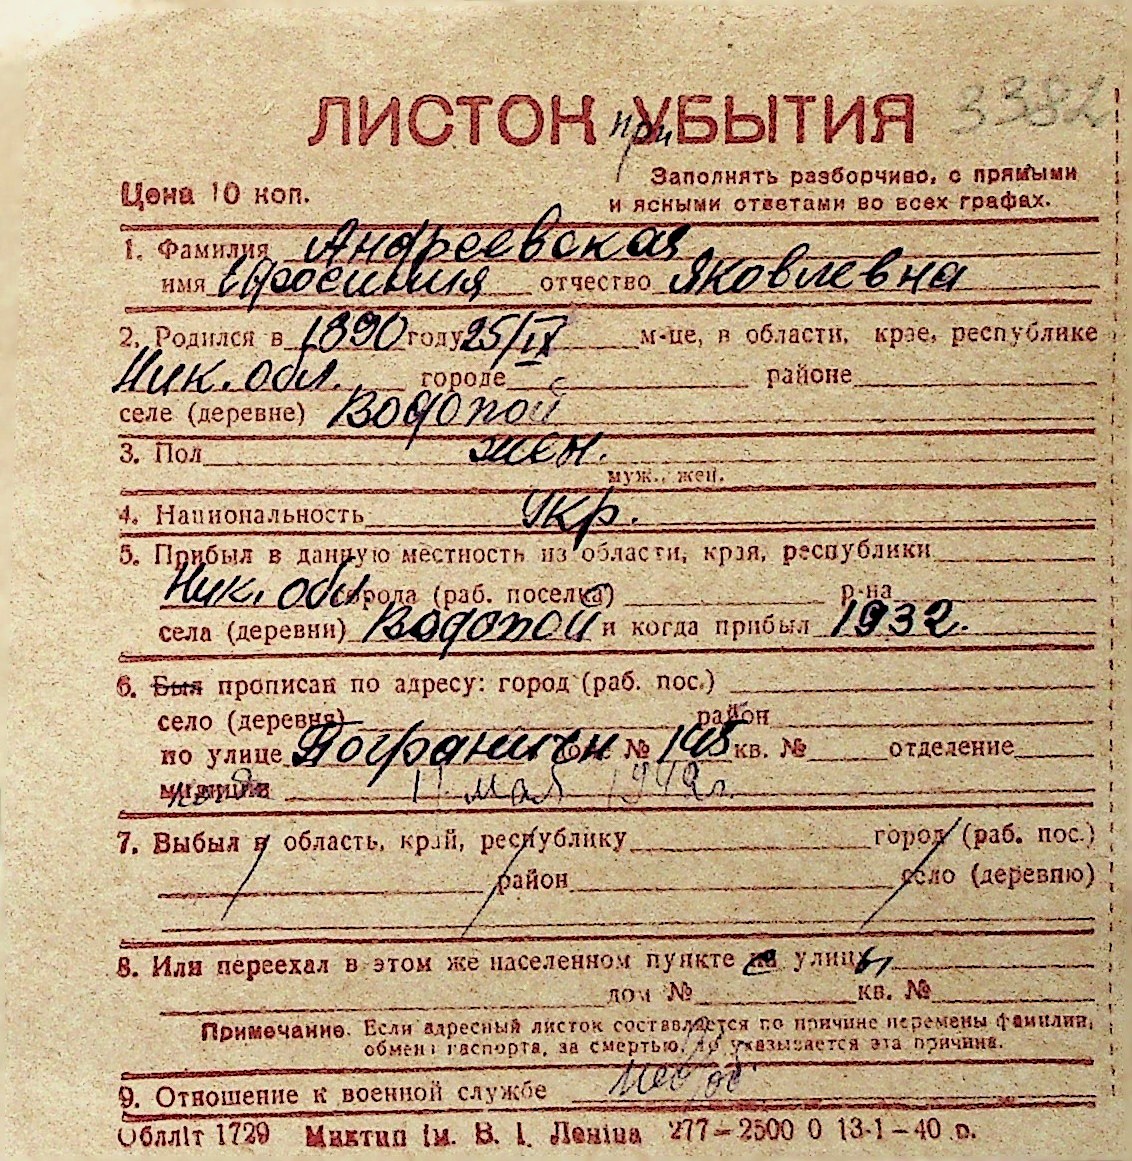 3382
ЛИСТОК при УБЫТИЯ
Цена 10 коп.
Заполнять разборчиво, с прямыми
и ясными ответами во всех графах.
1. Фамилия Андреевская
имя Ефросиния отчество Яковлевна
2. Родился в 1890 году 25/IX м-це, в области, крае, республике
Ник. обл. городе районе
селе (деревне) Водопой
3. Пол жен.
муж., жен.
4. Национальность Укр.
5. Прибыл в данную местность из области, края, республики
Ник. обл. города (раб. поселка) р-на
села (деревни) Водопой и когда прибыл 1932.
6. Был прописан по адресу: город (раб. пос.)
село (деревня) район
по улице Пограничн № 145 кв. № отделение
милиции 11 мая 1942г.
7. Выбыл в область, край, республику город (раб. пос.)
район село (деревню)
8. Или переехал в этом же населенном пункте на улицу
дом № кв. №
Примечание. Если адресный листок составляется по причине перемены фамилии,
обмена паспорта, за смертью, то указывается эта причина.
9. Отношение к военной службе
Облліт 1729 Миктип ім. В. І. Леніна 277—2500 0 13-1—40 р.